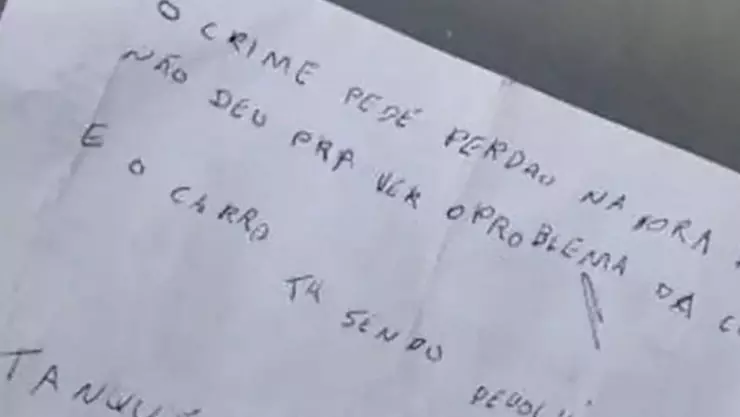 O CRIME PEDE PERDAO NA HORA
NÃO DEU PRA VER O PROBLEMA DA
E O CARRO TA SENDO